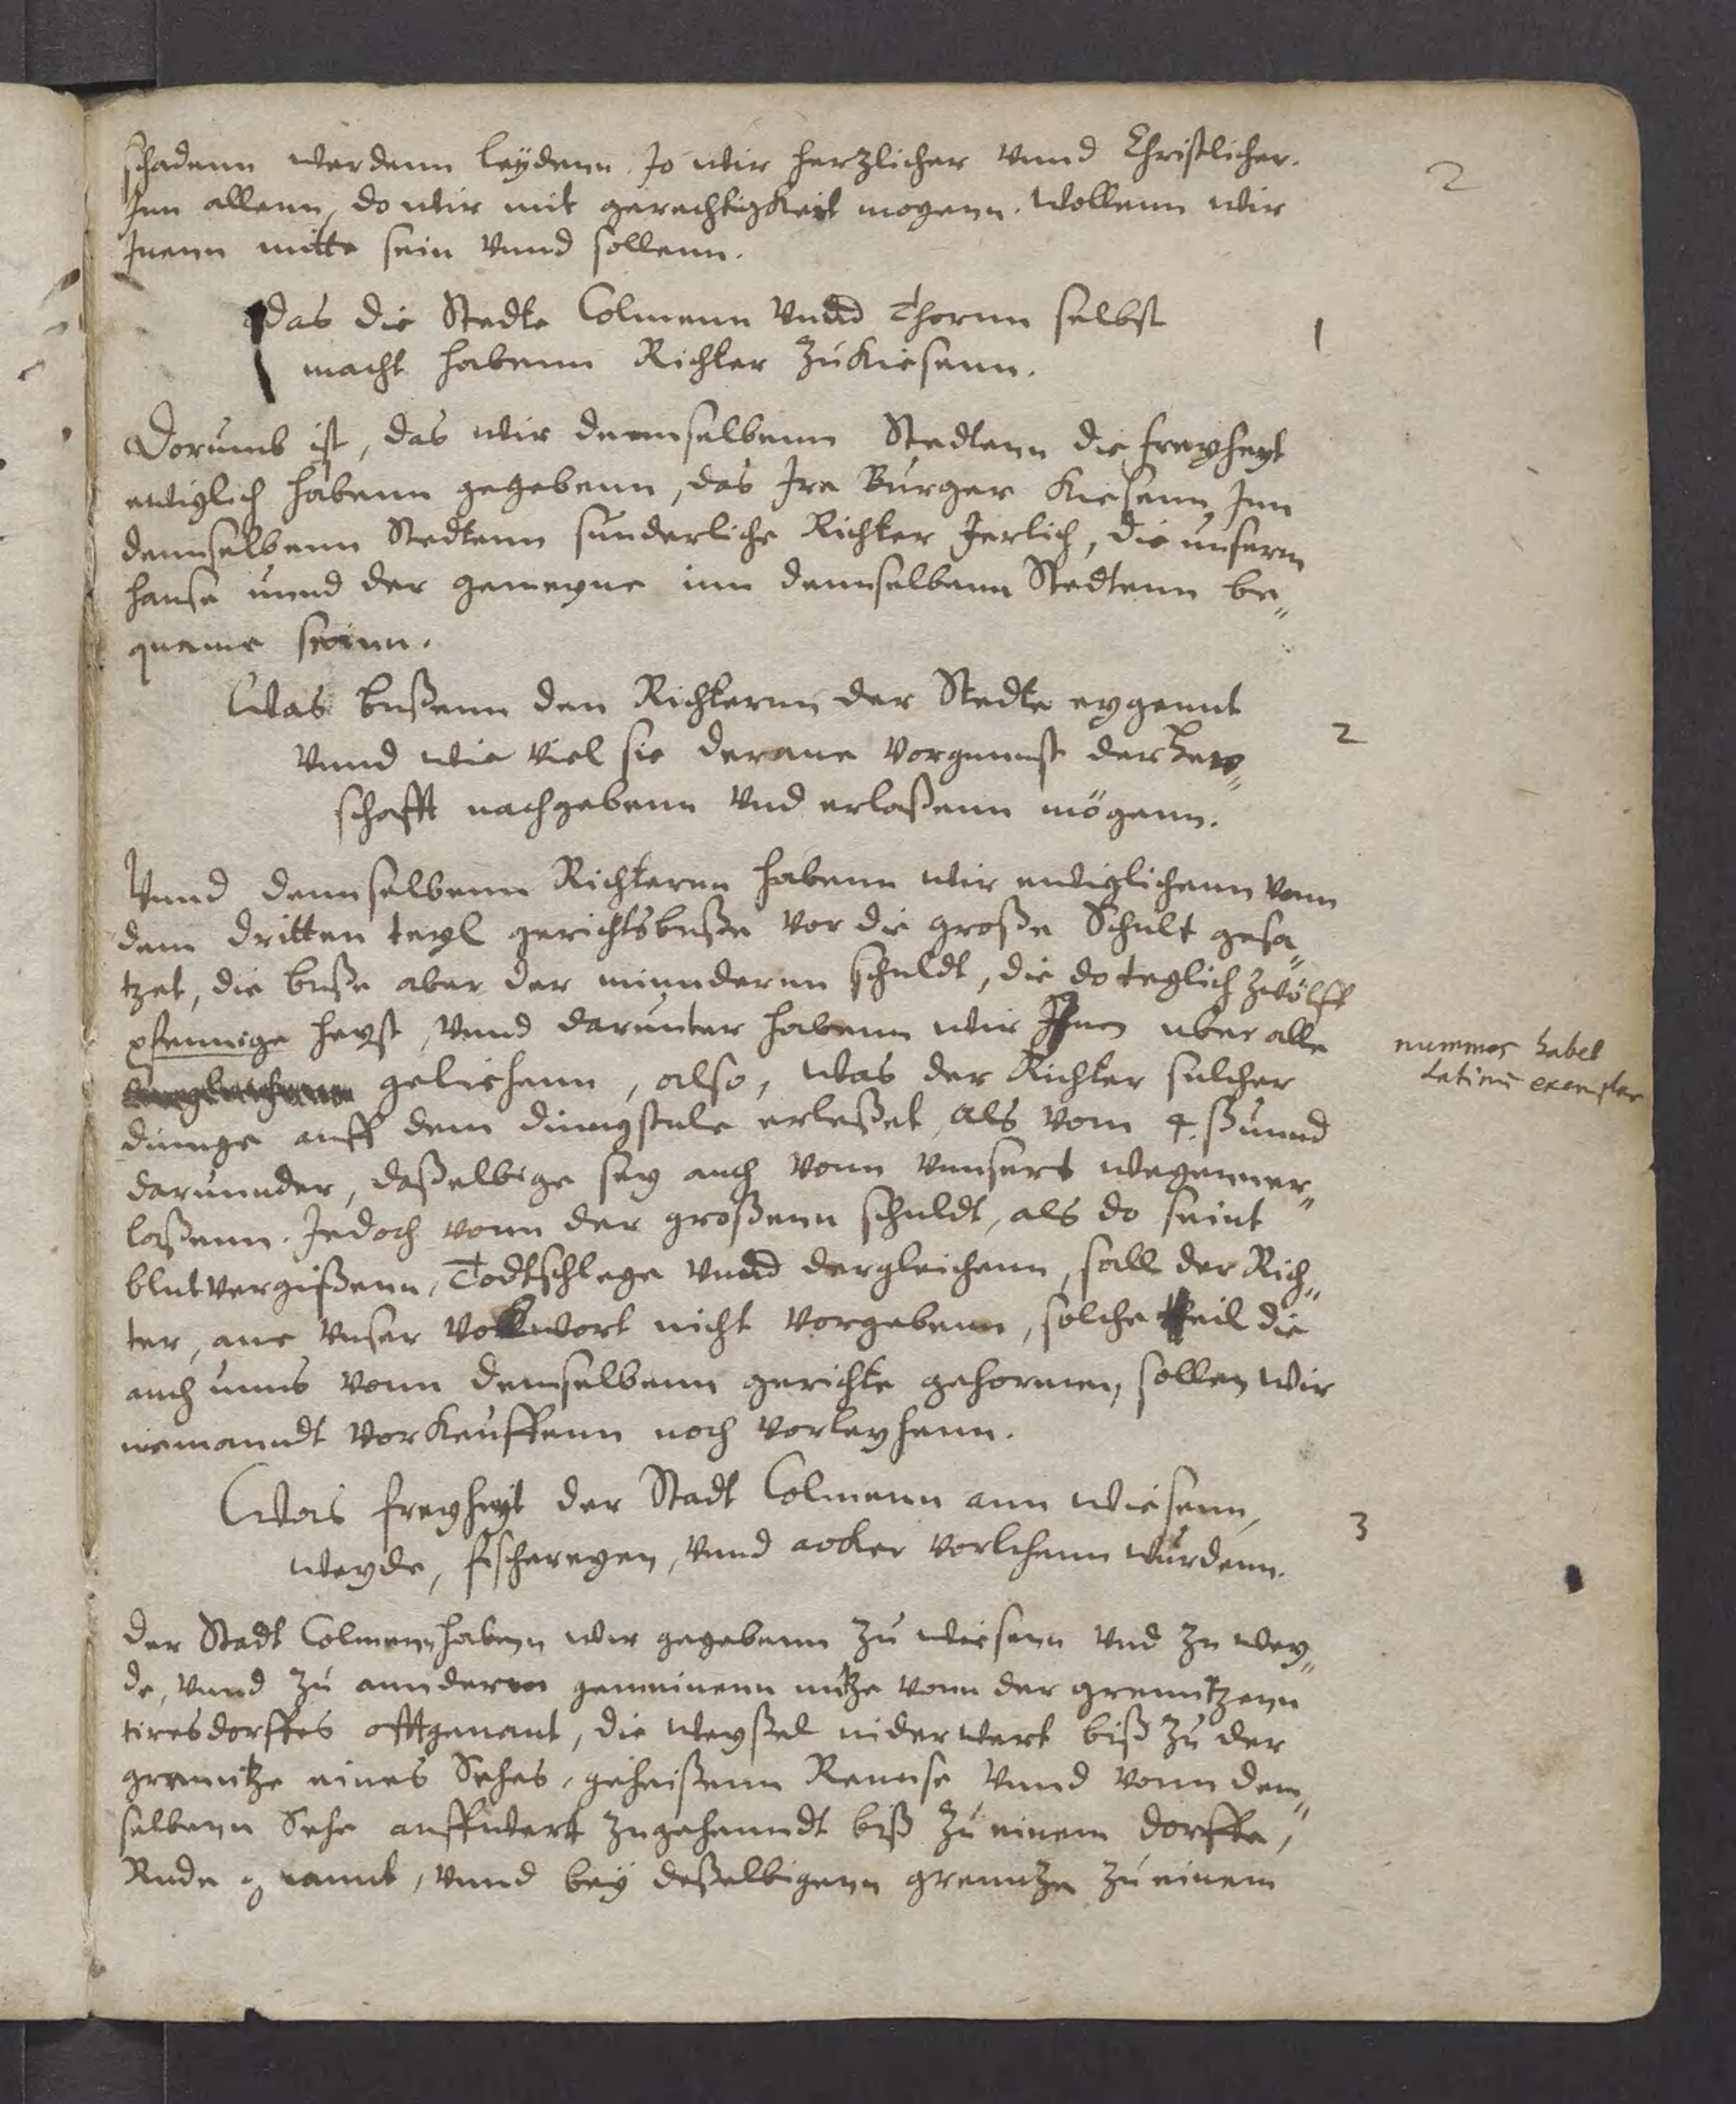 2
schadenn werdenn leÿdenn. Jo wir herzlicher vnnd Christlicher.
Inn allenn, do wir mit gerechtigkeit mogenn. wollenn wir
Inenn mitte sein vnnd sollenn.
das die Stedte Colmenn vnnd Thornn selbst
1
macht habenn Richter zu kiesenn.
Dorumb ist, das wir dennselbenn Stedtenn die freyheyt
ewiglich habenn gegebenn, das Ire Burger kiesenn Inn
dennselbenn Stedtenn sunderliche Richter Jerlich, die unserm
hause unnd der gemeyne inn dennselbenn Stedtenn be„
queme seinn.
Was bußenn den Richternn der Stedte eygennt
2
vnnd wie viel sie der ane vorgunst der Herr„
schafft nachgebenn vnd erlaßenn mögenn.
Vnnd dennselbenn Richternn habenn wir ewiglichenn vonn
dem dritten teyl gerichtsbuße vor die große Schult gesa„
tzet, die buße aber der minndernn schuldt, die do teglich zwölff
pfennige heyst, vnnd darunter habenn wir Ihnen uber alle
nummos habet
Latinũ exemplar
geliehenn, also, was der Richter sulcher
dinnge auff dem dinngstule erleßet, als vom 4. ß unnd
darunnder, daßelbige sey auch vonn vnnsert wegenn er„
laßenn. Jedoch vonn der großenn schuldt, als do seint
blutvergißenn, Todtschlege vnnd dergleichenn, soll der Rich„
ter, ane vnser volwort nicht vorgebenn, solche theil die
auch unns vonn demselbenn gerichte gehorenn, sollen wir
niemanndt vorkeuffenn noch vorleyhenn.
Was freyheyt der Stadt Colmenn ann wiesenn,
3
weyde, fischereyen, vnnd acker vorlehenn wurdenn.
Der Stadt Colmenn haben wir gegebenn zu wiesenn vnd zu wey„
de, vnnd zu anndernn gemeinenn nutze vonn der grenntzenn
tiresdorffes offtgenant, die weyßel niderwert biß zu der
grenntze eines Sehes, geheißenn Rennse, vnnd vonn dem„
selbenn Sehe auffwert zugehenndt biß zu einem dorffe,
Rude genannt, vnnd beÿ deßelbigenn grenntze zu einem